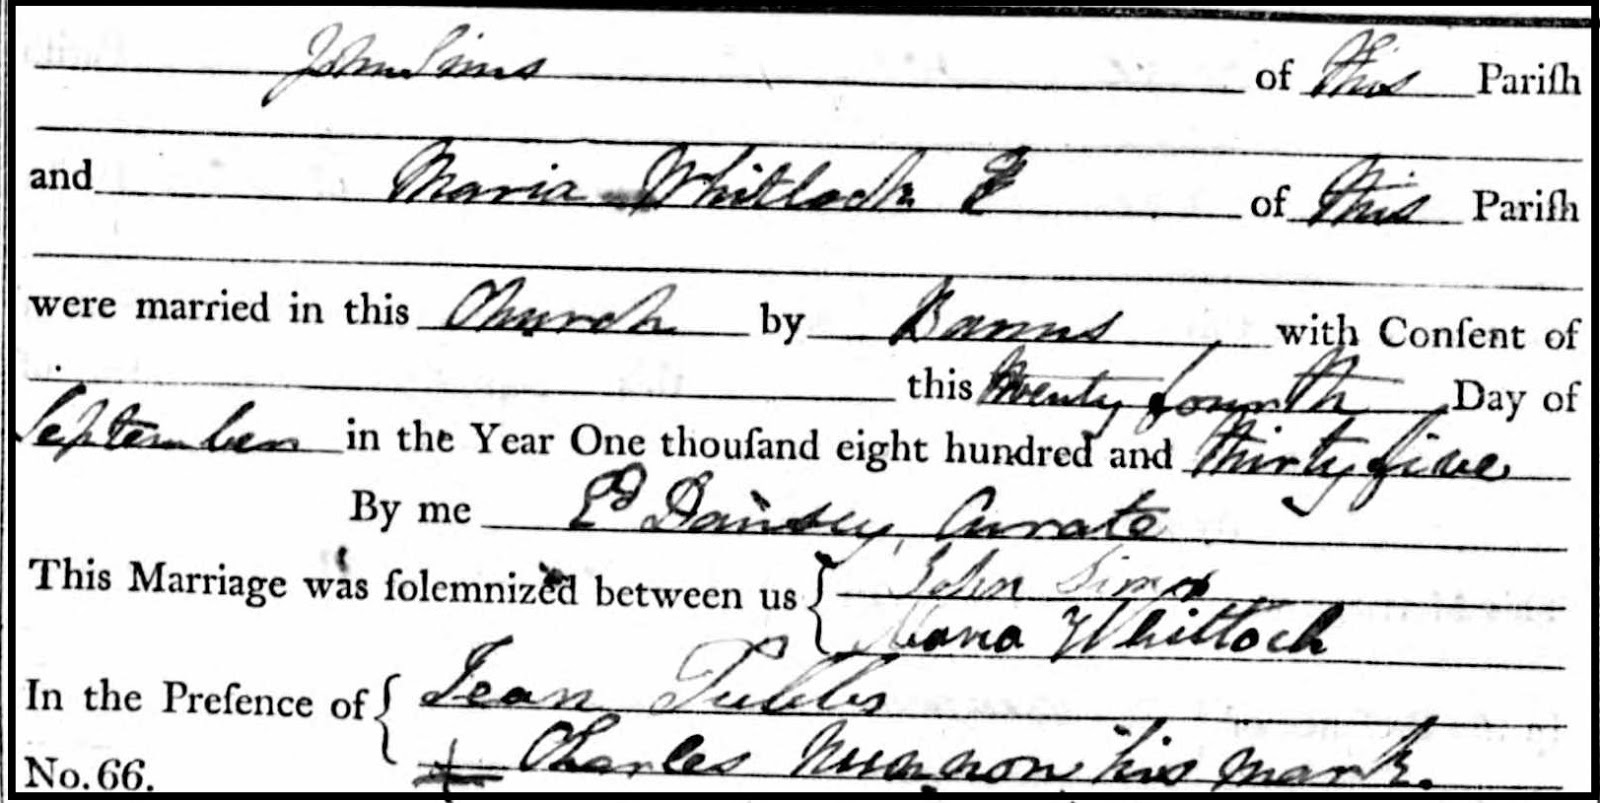 John Sims of this Pariſh
and Maria Whitlock of this Pariſh
were married in this Church by Banns with Conſent of
this twenty fourth Day of
September in the Year One thouſand eight hundred and thirty five
By me Ed Dansey, Curate
This Marriage was ſolemnized between us { John Sims
Maria Whitlock
In the Preſence of { Jean Tubbs
Charles his mark.
No. 66.